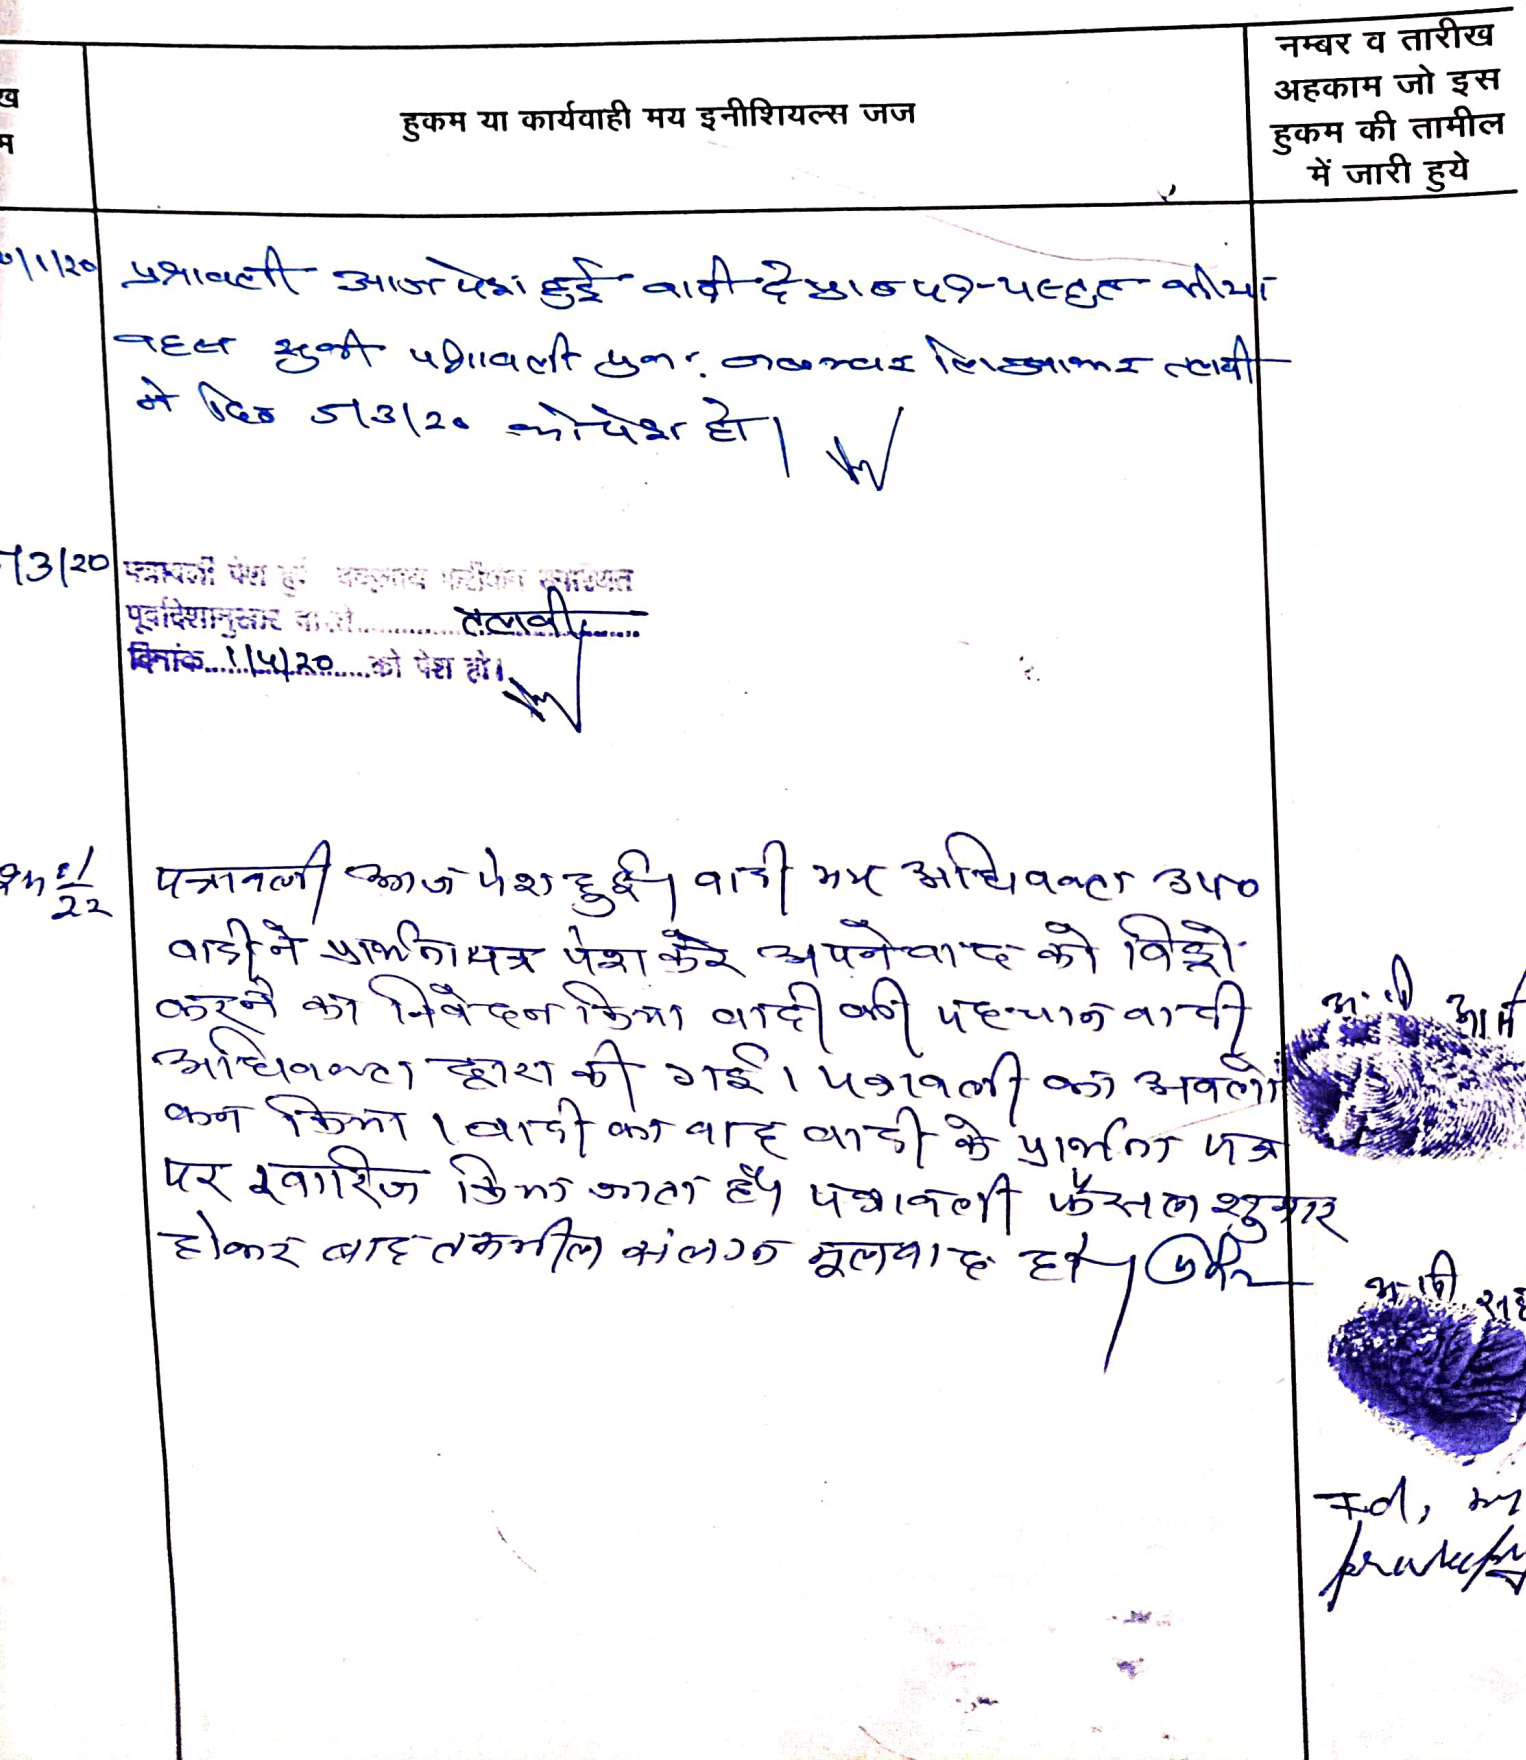 हुकम या कार्यवाही मय इनीशियल्स जज
नम्बर व तारीख
अहकाम जो इस
हुकम की तामील
में जारी हुये
/1/20 पत्रावली आज पेश हुई वादी
बहस सुनी पत्रावली पुनः तलबी
में दि० 5/3/20 को पेश हो।
/3/20 पत्रावली पेश हुई
पूर्वादेशानुसार वास्ते तलबी
दिनांक 1/4/20 को पेश हो।
22 पत्रावली आज पेश हुई। वादी मय अधिवक्ता उप०
वादी ने प्रार्थना पत्र पेश कर अपने वाद को विड्रो
करने का निवेदन किया वादी की पहचान वादी
अधिवक्ता द्वारा की गई। पत्रावली का अवलो
कन किया। वादी का वाद वादी के प्रार्थना पत्र
पर खारिज किया जाता है। पत्रावली फैसल शुमार
होकर बाद तकमील संलग्न मूलवाद हो।
Id, my